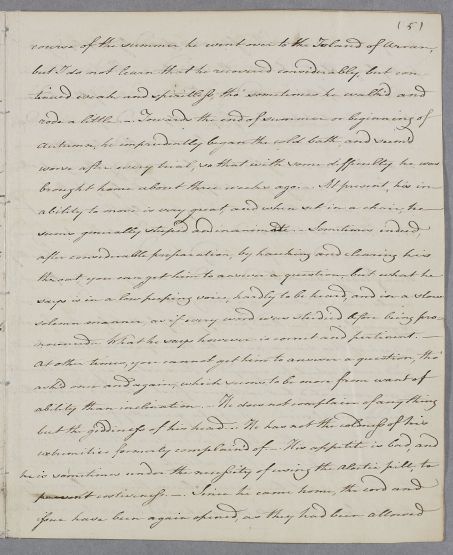 (5)
course of the summer he went over to the Island of Arran,
but I do not learn that he recovered considerably, but con
tinued weak and spiritless, tho' sometimes he walked and
rode a little. – Towards the end of summer or beginning of
Autumn, he imprudently began the cold bath, and seem'd
worse after every trial, so that with some difficulty he was
brought home about three weeks ago. – At present, his in
ability to move is very great, and when set in a chair, he
seems generally stupid and inanimate. – Sometimes, indeed,
after considerable preparation, by hawking and clearing his
throat you can get him to answer a question, but what he
says is in a low peeping voice, hardly to be heard, and in a slow
solemn manner, as if every word was studied before being pro
nounced. What he says however is correct and pertinent. –
At other times, you cannot get him to answer a question, tho'
ask'd once and again, which seems to be more from want of
ability than inclination. – He does not complain of any thing
but the giddiness of his head. He has not the coldness of his
extremities formerly complained of. – His appetite is bad, and
he is sometimes under the necessity of using the Aloetic pill, to
prevent costiveness. – Since he came home, the cord and
issue have been again opened, as they had been allowed